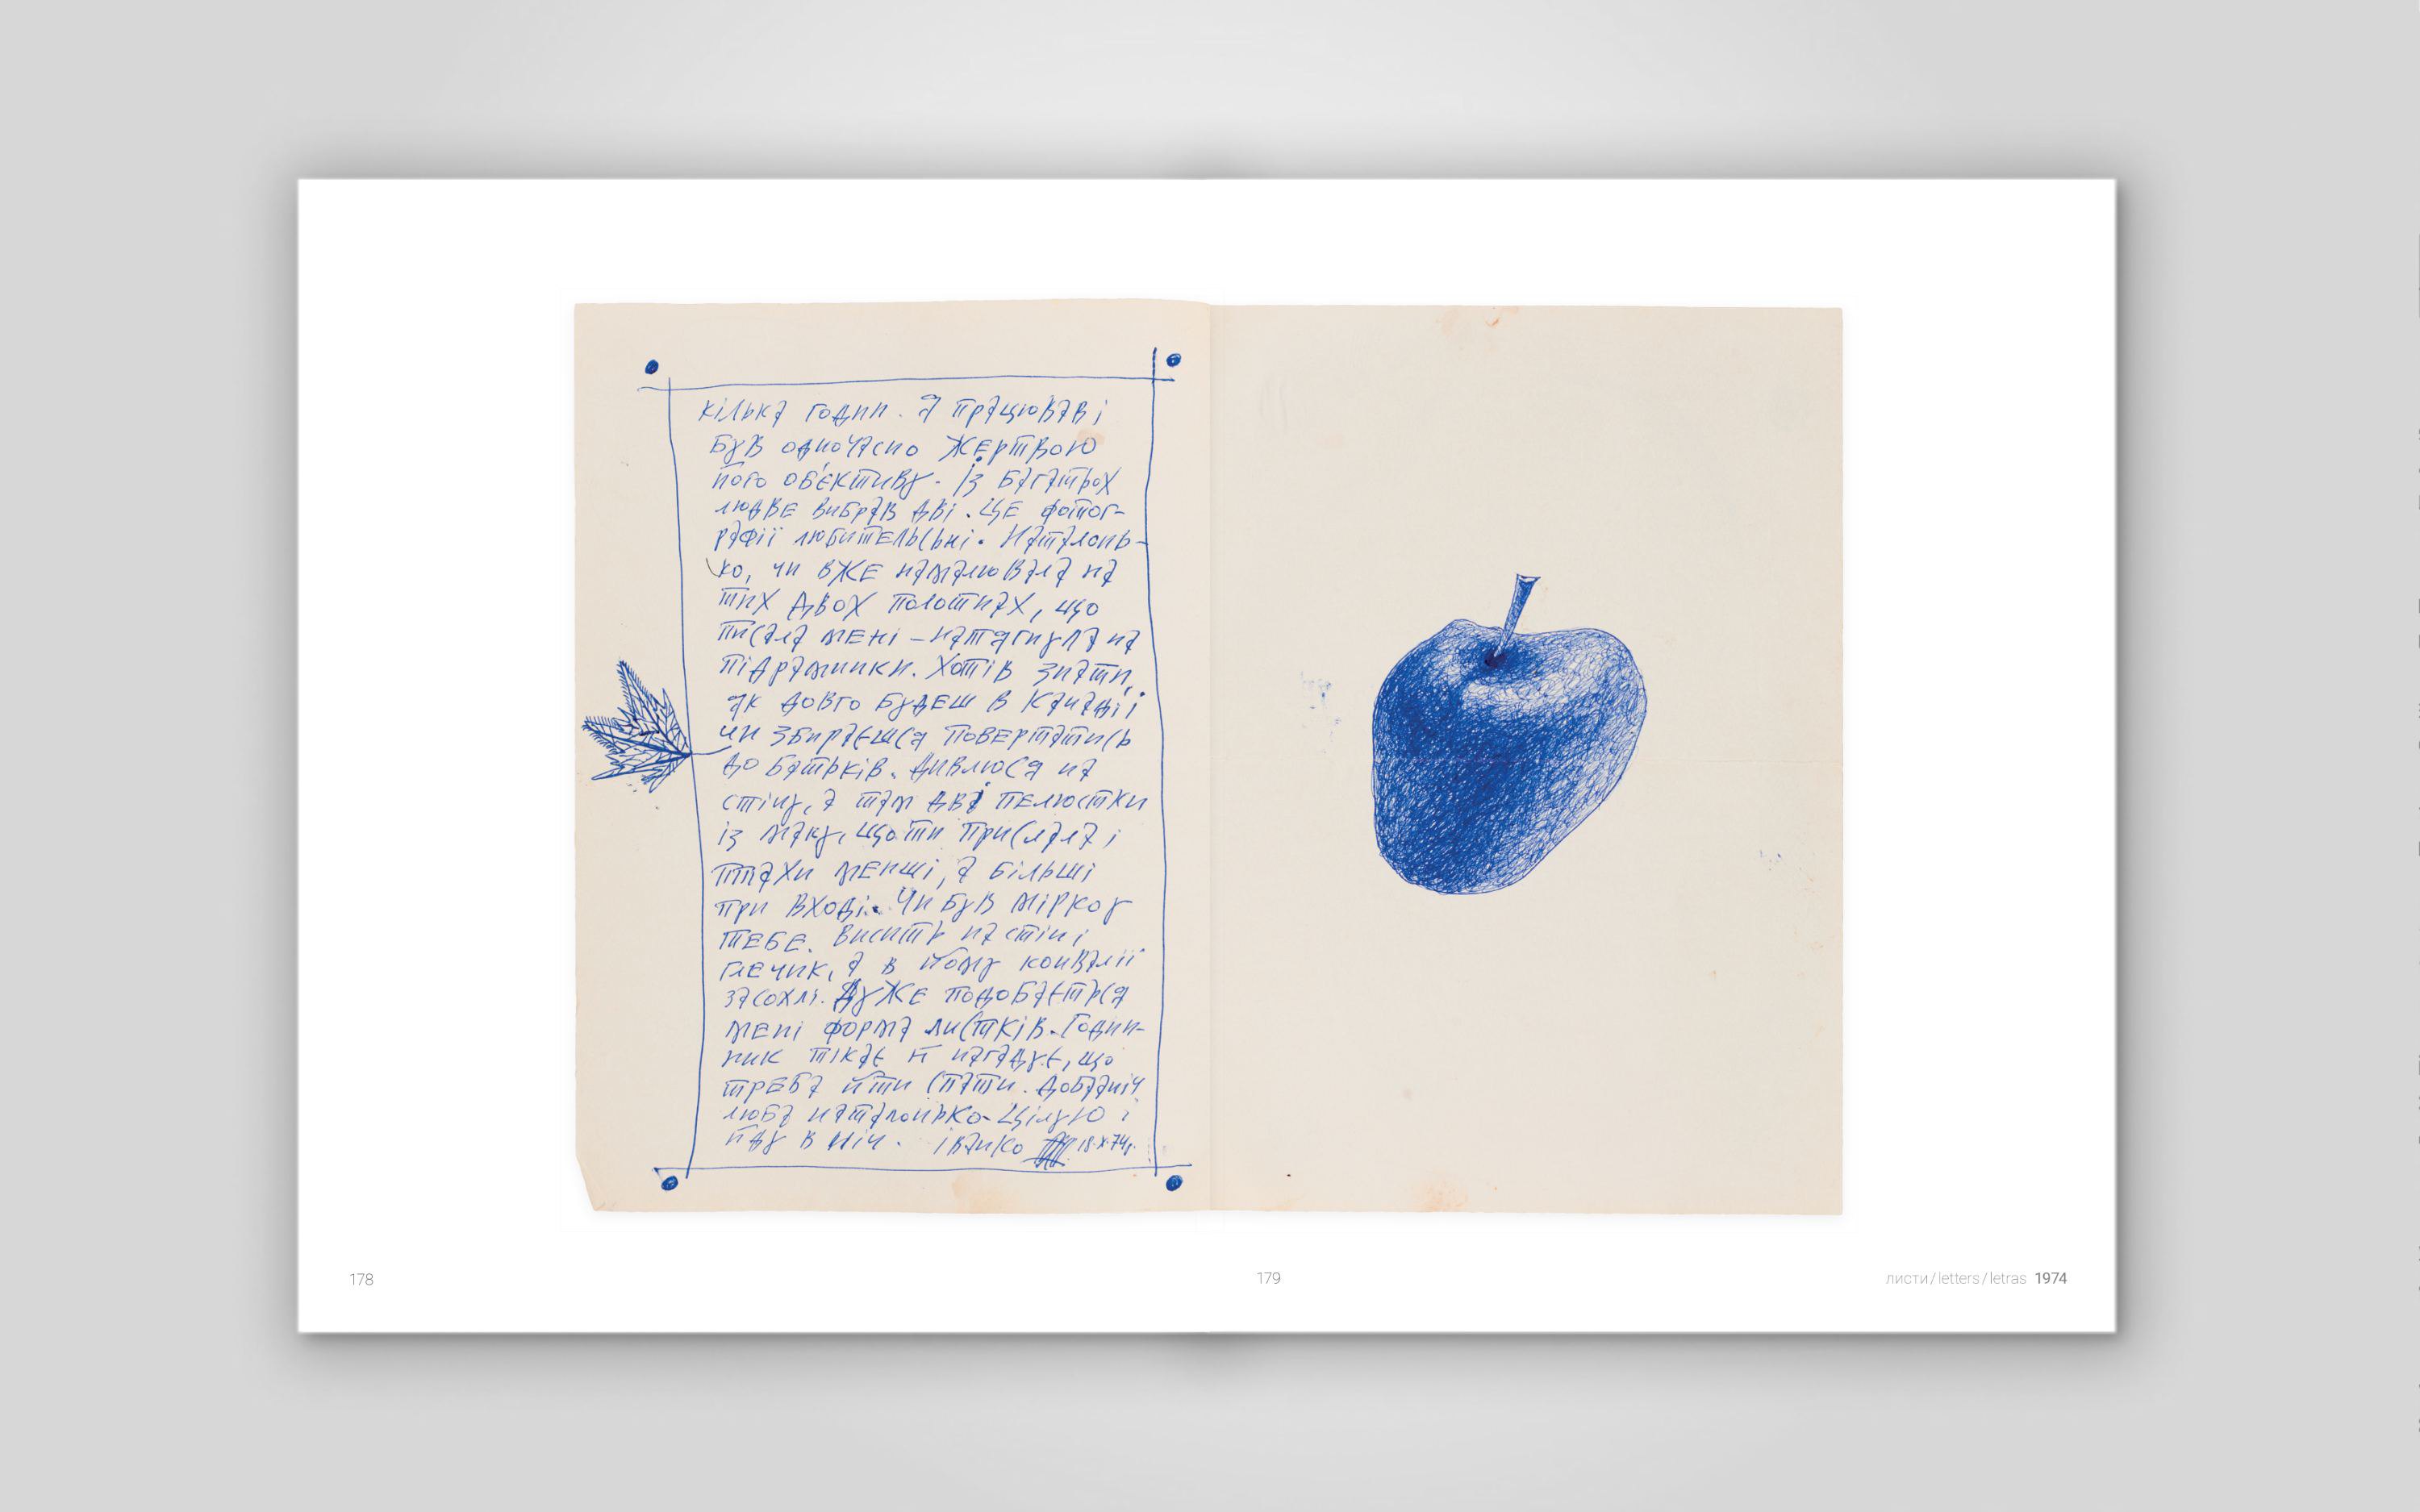 кілька годин. Я працював і
був одночасно жертвою
його об'єктиву. Із багатрох
людве вибрав дві. Це фотог-
рафії любительські. Наталонь-
ко, чи вже намалювала на
тих двох полотнах, що
писала мені – натягнула на
підрамники. Хотів знати,
як довго будеш в Канадії
чи збираєшся повертатись
до батьків. Дивлюся на
стіну, а там дві пелюстки
із маку, що ти прислала і
птахи менші, а більші
при вході. Чи був Мірко у
тебе. Висить на стіні
глечик, а в йому конвалії
засохлі. Дуже подобається
мені форма листків. Годин-
ник тікає й нагадує, що
треба йти спати. Добраніч
люба Наталонько. Цілую і
йду в ніч. Іванко 18.X.74р.
178
179
листи / letters / letras 1974